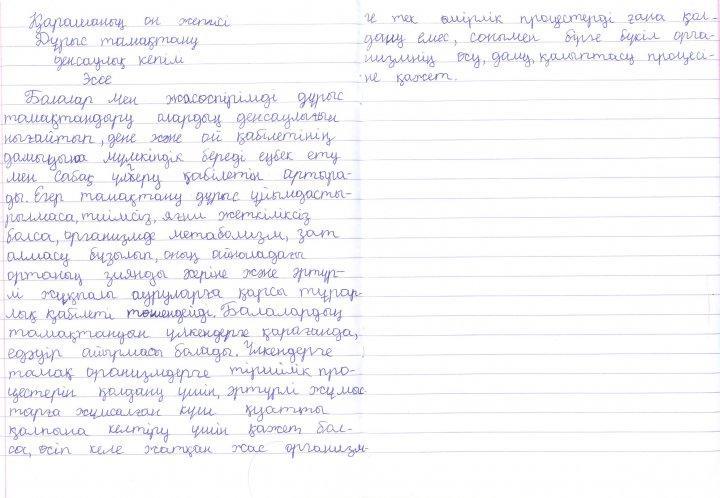 Қарашаның он жетісі
Дұрыс тамақтану
денсаулық кепілі
Эссе
Балалар мен жасөспірімді дұрыс
тамақтандыру олардың денсаулығын
нығайтып, дене және ой қабілетінің
дамуына мүмкіндік береді еңбек ету
мен сабақ үлгеру қабілетін арттыра-
ды. Егер тамақтану дұрыс ұйымдасты-
рылмаса, тиімсіз, яғни жеткіліксіз
болса, организмде метаболизм, зат
алмасу бұзылып, оның айналадағы
ортаның зиянды әсеріне және әртүр-
лі жұқпалы ауруларға қарсы тұрар-
лық қабілеті төмендейді. Балалардың
тамақтануын үлкендерге қарағанда,
едәуір айырмасы болады. Үлкендерге
тамақ организмдерге тіршілік про-
цестерін қолдану үшін, әртүрлі жұмыс
тарға жұмсалған күш қуатты
қалпына келтіру үшін қажет бол-
са, өсіп келе жатқан жас организм-
ге тек өмірлік процестерді ғана қол-
дану емес, сонымен бірге бүкіл орга-
низмнің өсу, даму, қалыптасу процесі-
не қажет.